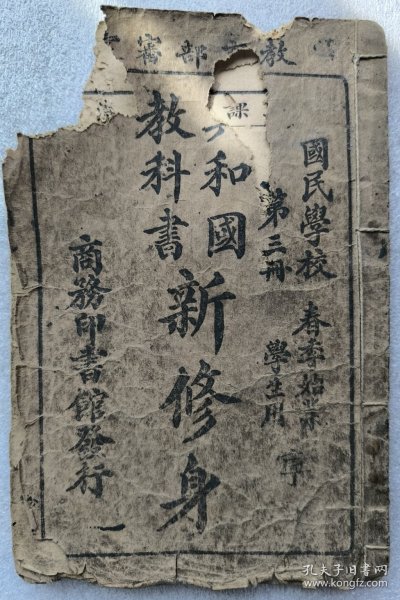 教 部審
課
國民學校 春季始業
第三冊 學生用
和國
教科書
新修身
商務印書館發行
孔夫子旧书网
www.kongfz.com